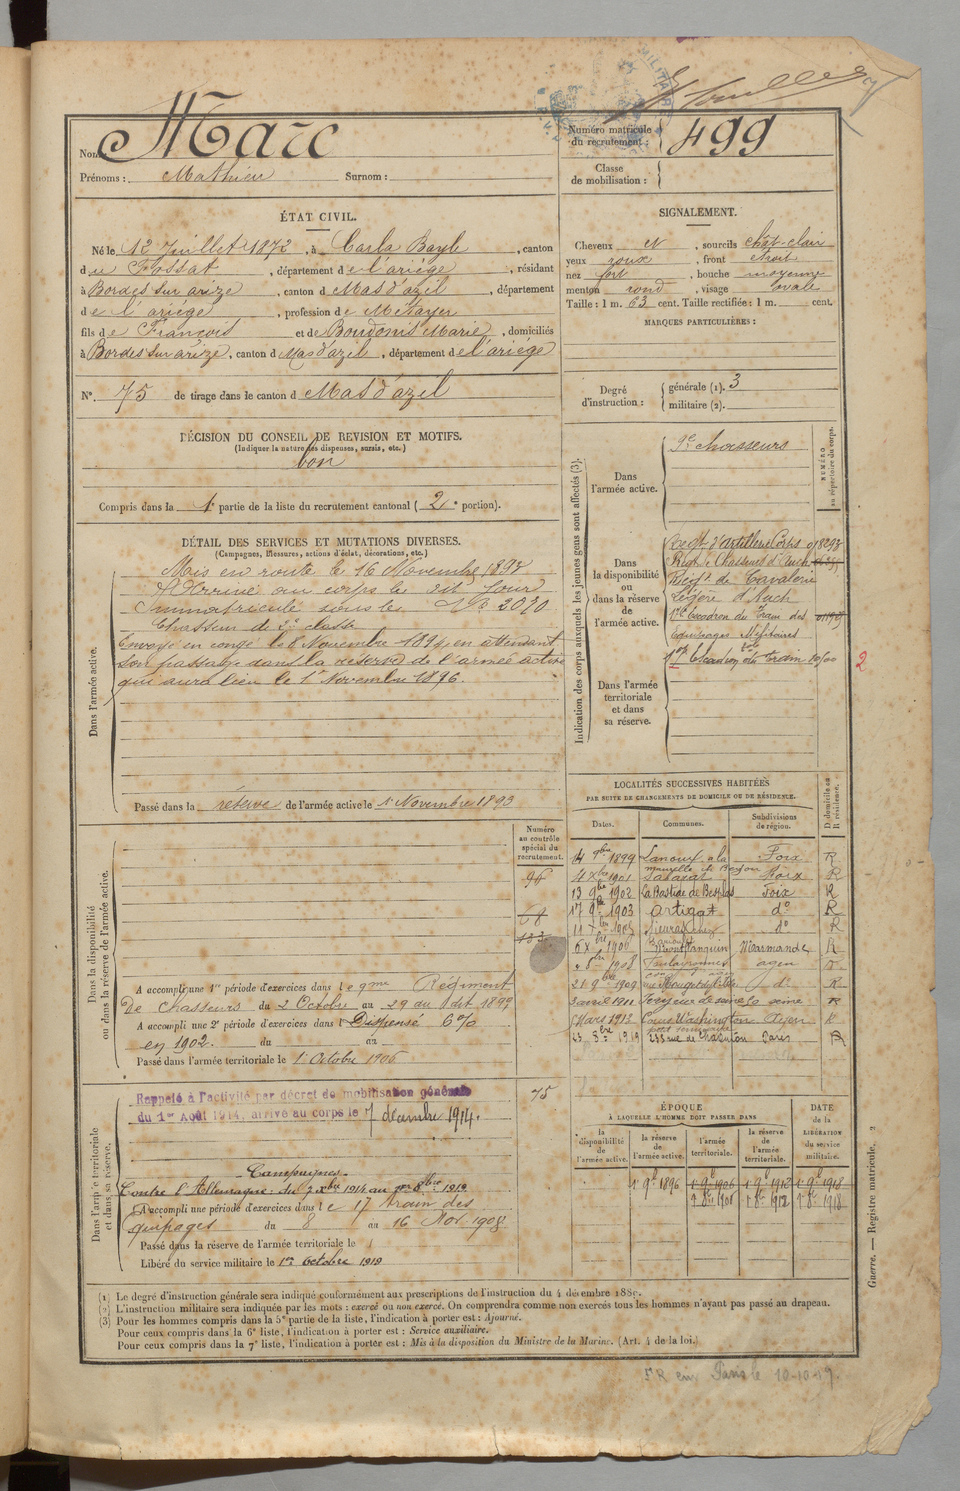 Nom: Marc
Prénoms: Mathieu Surnom:
Numéro matricule du recrutement: 499
Classe de mobilisation:
ÉTAT CIVIL.
Né le 12 Juillet 1872, à Carla Bayle, canton
du Fossat, département de l'ariége, résidant
à Bordes sur arize, canton d Mas d'azil, département
de l'ariége, profession de Métayer
fils de François et de Boudonis Marie, domiciliés
à Bordes sur arize, canton d Mas d'azil, département de l'ariége
N° 75 de tirage dans le canton d Mas d'azil
DÉCISION DU CONSEIL DE REVISION ET MOTIFS.
(Indiquer la nature des dispenses, sursis, etc.)
bon
Compris dans la 1e partie de la liste du recrutement cantonal (2e portion).
DÉTAIL DES SERVICES ET MUTATIONS DIVERSES.
(Campagnes, Blessures, actions d'éclat, décorations, etc.)
Dans l'armée active.
Mis en route le 16 Novembre 1893
Arrivé au corps le dit jour
Immatriculé sous le N° 2020
Chasseur de 2e classe
Envoyé en congé le 8 Novembre 1894, en attendant
son passage dans la réserve de l'armée active
qui aura lieu le 1r Novembre 1896.
Passé dans la réserve de l'armée active le 1r Novembre 1893
Dans la disponibilité ou dans la réserve de l'armée active.
Numéro au contrôle spécial du recrutement.
96
68
133
A accompli une 1re période d'exercices dans le 9me Régiment
De chasseurs du 2 Octobre au 29 du dit 1899
A accompli une 2e période d'exercices dans l Dispensé 6%
en 1902. du au
Passé dans l'armée territoriale le 1r Octobre 1906
Dans l'armée territoriale et dans sa réserve.
75
Rappelé à l'activité par décret de mobilisation générale
du 1er Août 1914, arrivé au corps le 7 décembre 1914.
Campagnes.
Contre l'Allemagne: du 7 Xbre 1914 au
A accompli une période d'exercices dans le 17 train des
équipages du 8 au 16 Nov 1908
Passé dans la réserve de l'armée territoriale le
Libéré du service militaire le 1er Octobre 1918
SIGNALEMENT.
Cheveux et, sourcils chât-clair
yeux roux, front étroit
nez fort, bouche moyenne
menton rond, visage ovale
Taille: 1 m. 63 cent. Taille rectifiée: 1 m. cent.
MARQUES PARTICULIÈRES:
Degré d'instruction: générale (1). 3
militaire (2).
Indication des corps auxquels les jeunes gens sont affectés (3).
NUMÉRO au répertoire du corps.
Dans l'armée active.
9e chasseurs
Dans la disponibilité ou dans la réserve de l'armée active.
Regt d'artillerie Corps
Régt de Chasseurs d'Auch
Régt de Cavalerie
Légère d'Auch
1er Escadron du Train des
équipages Militaires
Dans l'armée territoriale et dans sa réserve.
Escadron du train
2
LOCALITÉS SUCCESSIVES HABITÉES
PAR SUITE DE CHANGEMENTS DE DOMICILE OU DE RÉSIDENCE.
Dates. Communes. Subdivisions de région. D. domicile ou R. résidence.
14 9bre 1899 Lanoux Foix R
4 Xbre 1901 Foix R
13 9bre 1902 La Bastide de Besplas Foix R
17 9bre 1903 Artigat do R
11 Xbre 1905 do R
6 Xbre 1906 Montflanquin Marmande R
8bre 1908 agen
21 9bre 1909 do R
3 avril 1911 seine R
Mars 1913 Washington
23 8bre 1919 235 rue de Charenton Paris R
ÉPOQUE
À LAQUELLE L'HOMME DOIT PASSER DANS
DATE de la LIBÉRATION du service militaire.
la disponibilité de l'armée active. la réserve de l'armée active. l'armée territoriale. la réserve de l'armée territoriale.
1r 9e 1896 1r 9e 1906 1r 9e 1912 1r 9e 1918
1r 8e 1906 1r 8e 1912 1r 8e 1918
(1) Le degré d'instruction générale sera indiqué conformément aux prescriptions de l'instruction du 4 décembre 1889.
(2) L'instruction militaire sera indiquée par les mots: exercé ou non exercé. On comprendra comme non exercés tous les hommes n'ayant pas passé au drapeau.
(3) Pour les hommes compris dans la 5e partie de la liste, l'indication à porter est: Ajourné.
Pour ceux compris dans la 6e liste, l'indication à porter est: Service auxiliaire.
Pour ceux compris dans la 7e liste, l'indication à porter est: Mis à la disposition du Ministre de la Marine. (Art. 4 de la loi.)
Guerre. — Registre matricule. 2
Paris le 10-10-19.